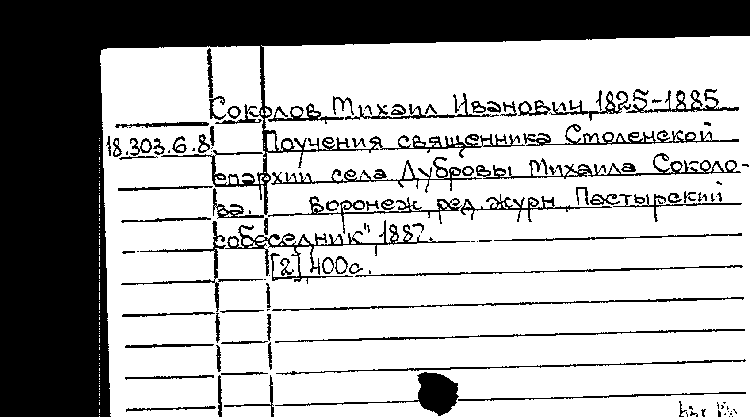 Соколов, Михаил Иванович, 1825-1885
18.303.6.8 Поучения священника Смоленской
епархии села Дубровы Михаила Соколо-
ва. Воронеж, ред. журн. "Пастырский
собеседник", 1887.
[2], 400с.